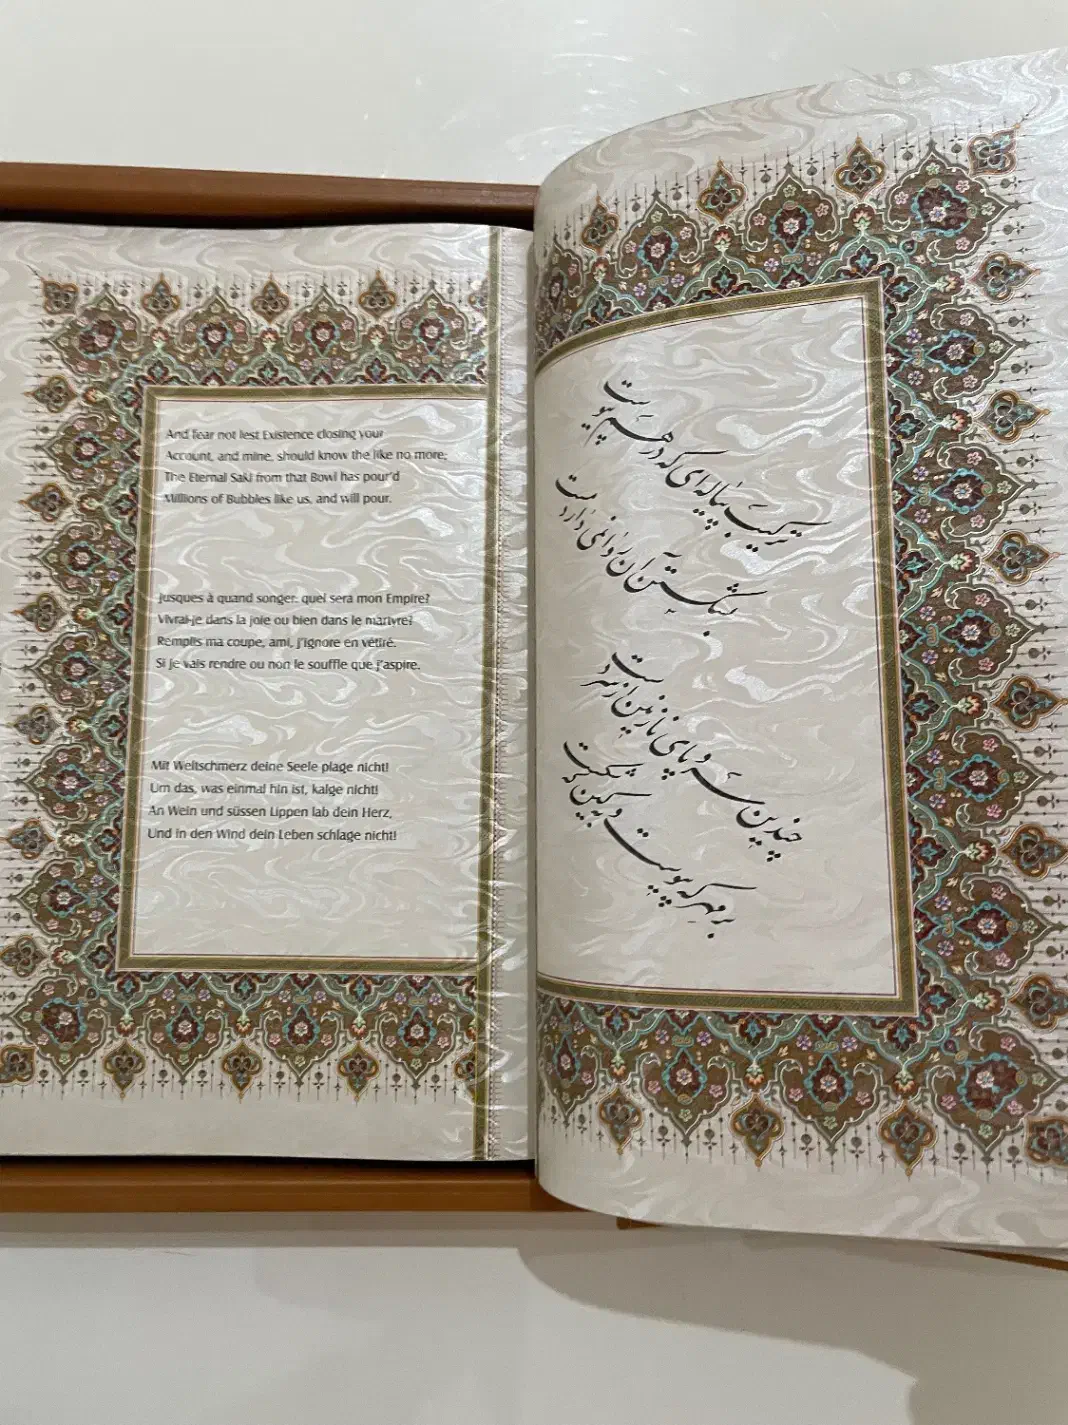 And fear not lest Existence closing your
Account, and mine, should know the like no more;
The Eternal Saki from that Bowl has pour'd
Millions of Bubbles like us, and will pour.
Jusques à quand songer: quel sera mon Empire?
Vivrai-je dans la joie ou bien dans le martyre?
Remplis ma coupe, ami, j'ignore en vétiré.
Si je vais rendre ou non le souffle que j'aspire.
Mit Weltschmerz deine Seele plage nicht!
Um das, was einmal hin ist, kalge nicht!
An Wein und süssen Lippen lab dein Herz,
Und in den Wind dein Leben schlage nicht!
ترکیب پیاله‌ای که درهم پیوست
بشکستن آن روا نمی‌دارد مست
چندین سر و پای نازنین از سر دست
بر مهر که پیوست و به کین که شکست